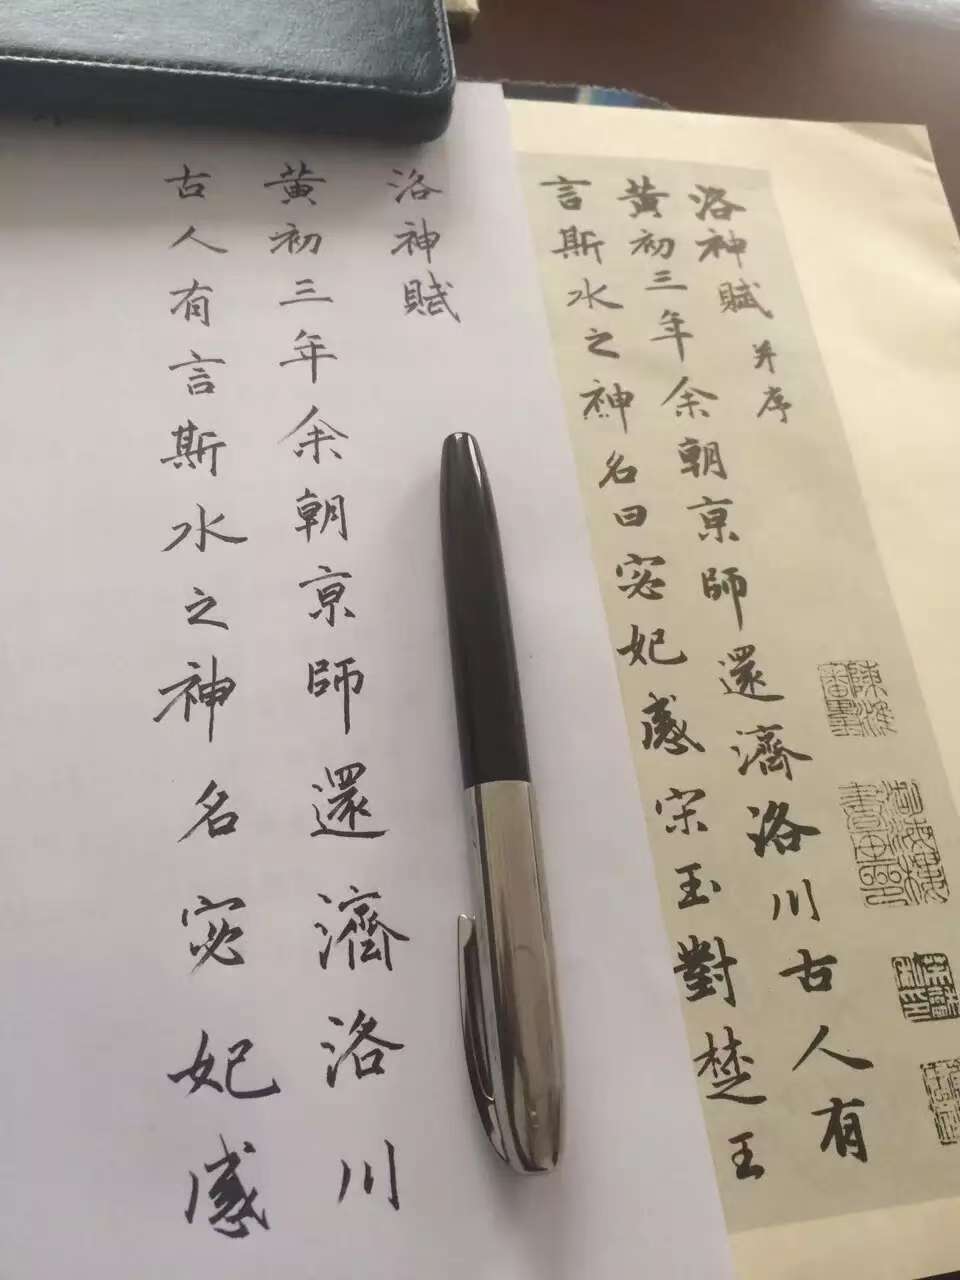 洛神賦并序
黃初三年余朝京師還濟洛川古人有
言斯水之神名曰宓妃感宋玉對楚王
洛神賦
黃初三年余朝京師還濟洛川
古人有言斯水之神名宓妃感